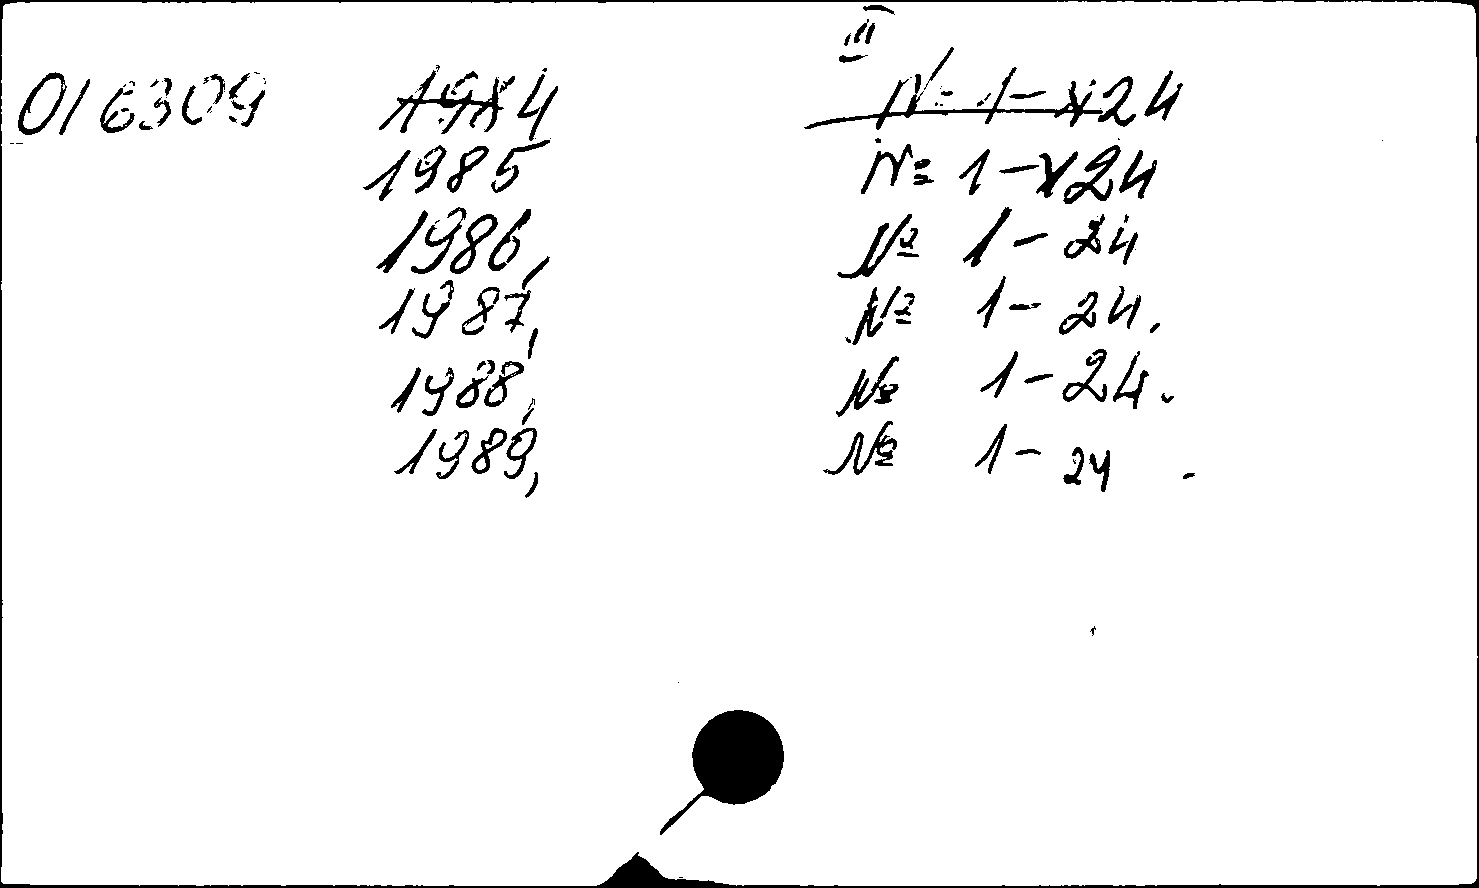 III
016309 1984 № 1-24
1985 № 1-24
1986, № 1-24
1987, № 1-24.
1988, № 1-24.
1989, № 1-24.